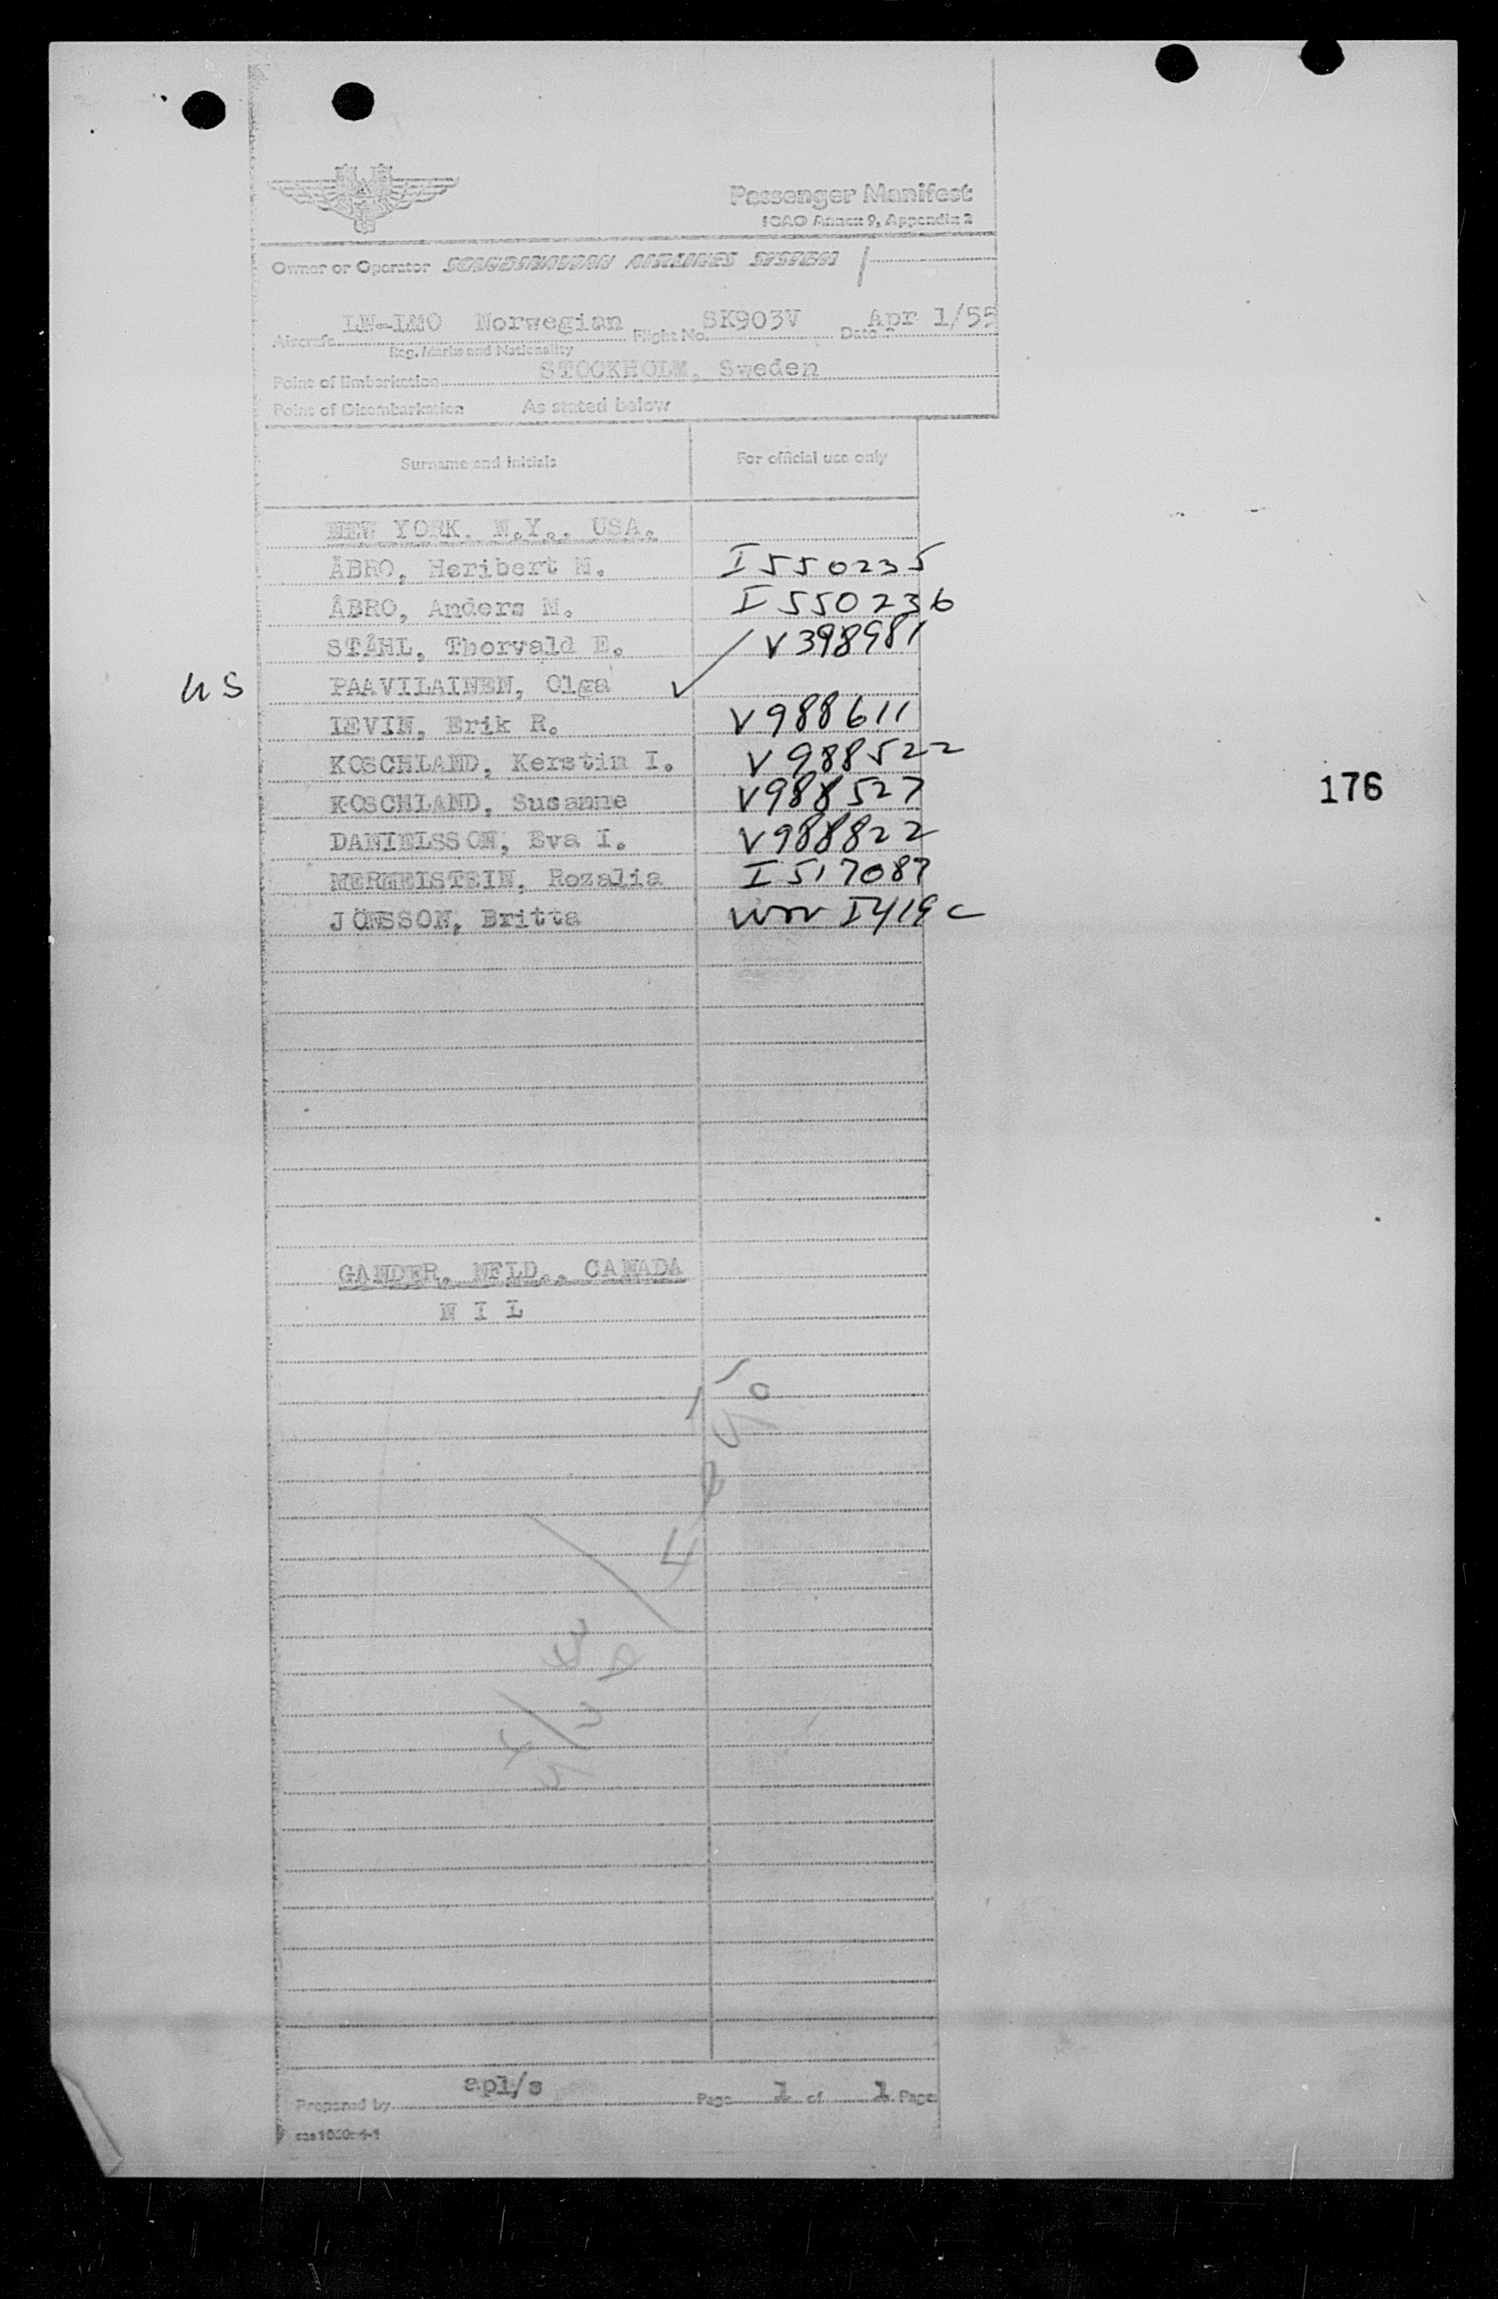 Passenger Manifest
ICAO Annex 9, Appendix 2
Owner or Operator SCANDINAVIAN AIRLINES SYSTEM
Aircraft LN-LMO Norwegian Flight No. SK903V Date Apr 1/55
Reg. Marks and Nationality
Point of Embarkation STOCKHOLM, Sweden
Point of Disembarkation As stated below
Surname and initials For official use only
NEW YORK, N.Y., USA.
ÅBRO, Heribert M. I 550235
ÅBRO, Anders M. I 550236
STÅHL, Thorvald E. V 398981
US PAAVILAINEN, Olga ✓
IEVIN, Erik R. V 988611
KOSCHLAND, Kerstin I. V 988522
KOSCHLAND, Susanne V 988527
176
DANIELSSON, Eva I. V 988822
MERMELSTEIN, Rozalia I 517087
JÖNSSON, Britta
GANDER, NFLD., CANADA
N I L
Prepared by apl/s Page 1 of 1 Page